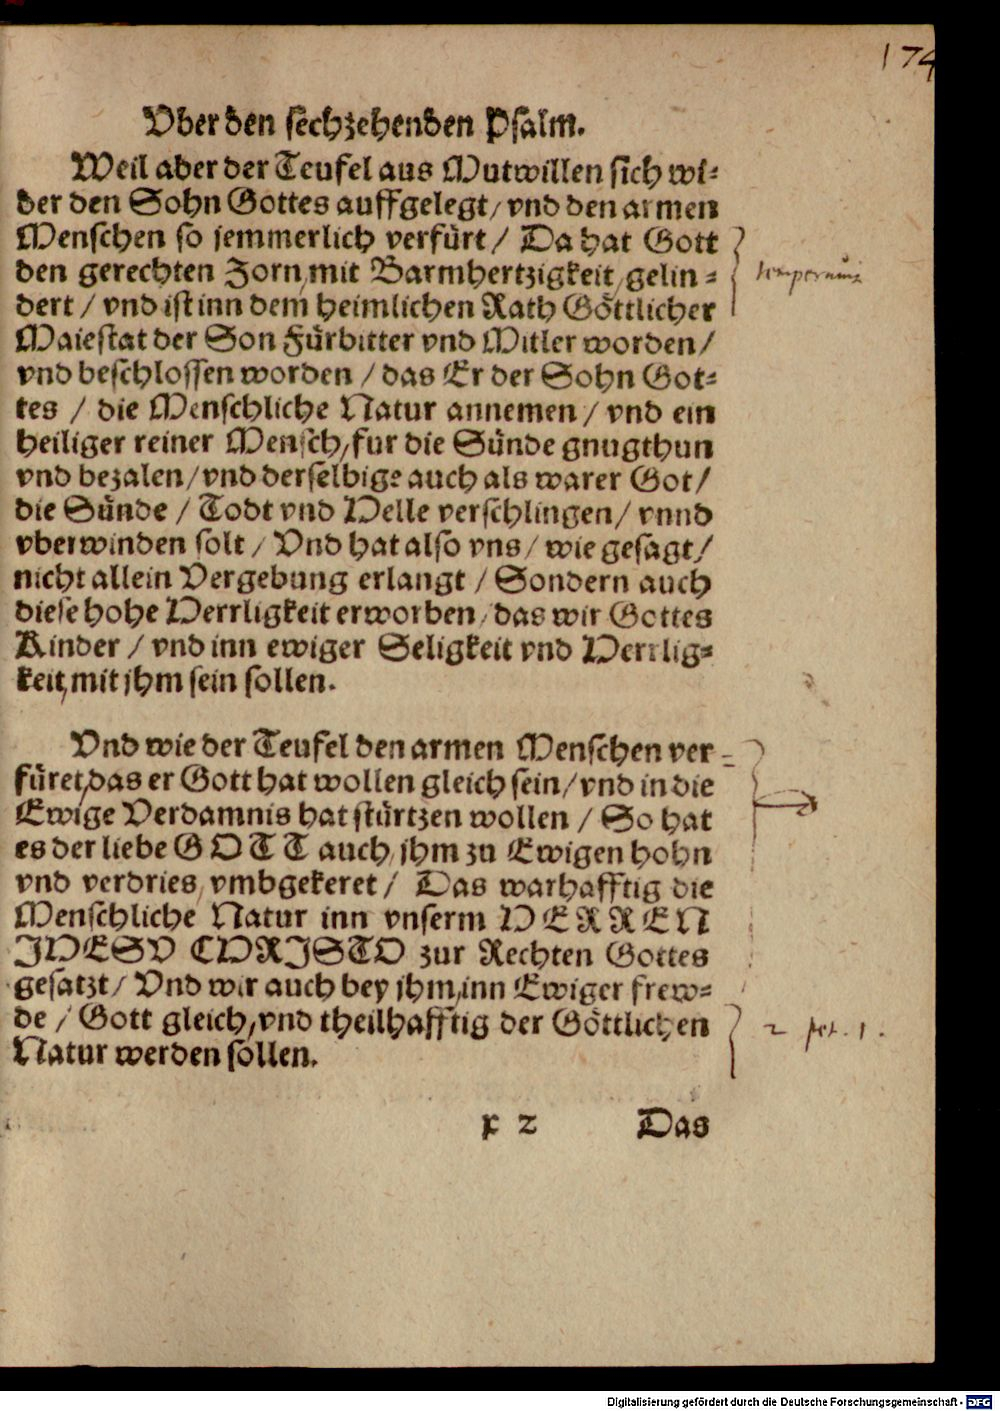 174
Vber den sechzehenden Psalm.
Weil aber der Teufel aus Mutwillen sich wi-
der den Sohn Gottes auffgelegt / vnd den armen
Menschen so jemmerlich verfürt / Da hat Gott
den gerechten Zorn, mit Barmhertzigkeit, gelin-
dert / vnd ist inn dem heimlichen Rath Göttlicher
Maiestat der Son Fürbitter vnd Mitler worden /
vnd beschlossen worden / das Er der Sohn Got-
tes / die Menschliche Natur annemen / vnd ein
heiliger reiner Mensch, fur die Sünde gnugthun
vnd bezalen / vnd derselbige auch als warer Got /
die Sünde / Todt vnd Helle verschlingen / vnnd
vberwinden solt / Vnd hat also vns / wie gesagt /
nicht allein Vergebung erlangt / Sondern auch
diese hohe Herrligkeit erworben, das wir Gottes
Kinder / vnd inn ewiger Seligkeit vnd Herrlig-
keit, mit jhm sein sollen.
Vnd wie der Teufel den armen Menschen ver-
füret, das er Gott hat wollen gleich sein / vnd in die
Ewige Verdamnis hat stürtzen wollen / So hat
es der liebe GOTT auch, jhm zu Ewigen hohn
vnd verdries, vmbgekeret / Das warhafftig die
Menschliche Natur inn vnserm HERREN
JHESV CHRISTO zur Rechten Gottes
gesatzt / Vnd wir auch bey jhm, inn Ewiger frew-
de / Gott gleich, vnd theilhafftig der Göttlichen
Natur werden sollen.
2 pet. 1.
x 2 Das
Digitalisierung gefördert durch die Deutsche Forschungsgemeinschaft - DFG